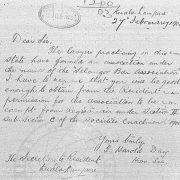 Kuala Lumpur
27th February
Dear Sir,
The lawyers practising in this
state have formed an association under
the name of the Selangor Bar Association
I have to request that you will be good
enough to obtain from the Resident
permission for the association to be
exempt from registration under Section
sub section C of the Societies Enactment
Yours truly
Hon. Sec.
The Secretary to Resident
Kuala Lumpur